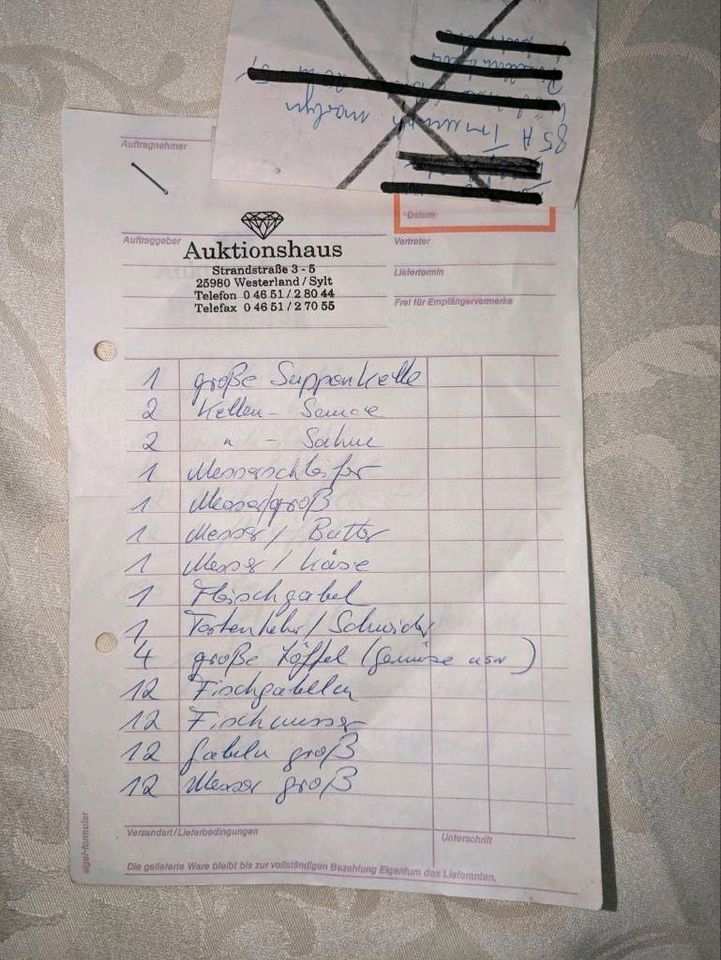 85 A Triumph
Auftragnehmer
Datum
Auftraggeber
Auktionshaus
Strandstraße 3 - 5
25980 Westerland / Sylt
Telefon 0 46 51 / 2 80 44
Telefax 0 46 51 / 2 70 55
Vertreter
Liefertermin
Frei für Empfängervermerke
1 große Suppenkelle
2 Kellen - Sauce
2 " - Sahne
1 Messerschleifer
1 Messer/groß
1 Messer / Butter
1 Messer / Käse
1 Fleischgabel
1 Tortenheber / Schneider
4 große Löffel (Gemüse usw)
12 Fischgabeln
12 Fischmesser
12 Gabeln groß
12 Messer groß
Versandart/Lieferbedingungen
Unterschrift
Die gelieferte Ware bleibt bis zur vollständigen Bezahlung Eigentum des Lieferanten.
sigel-formular